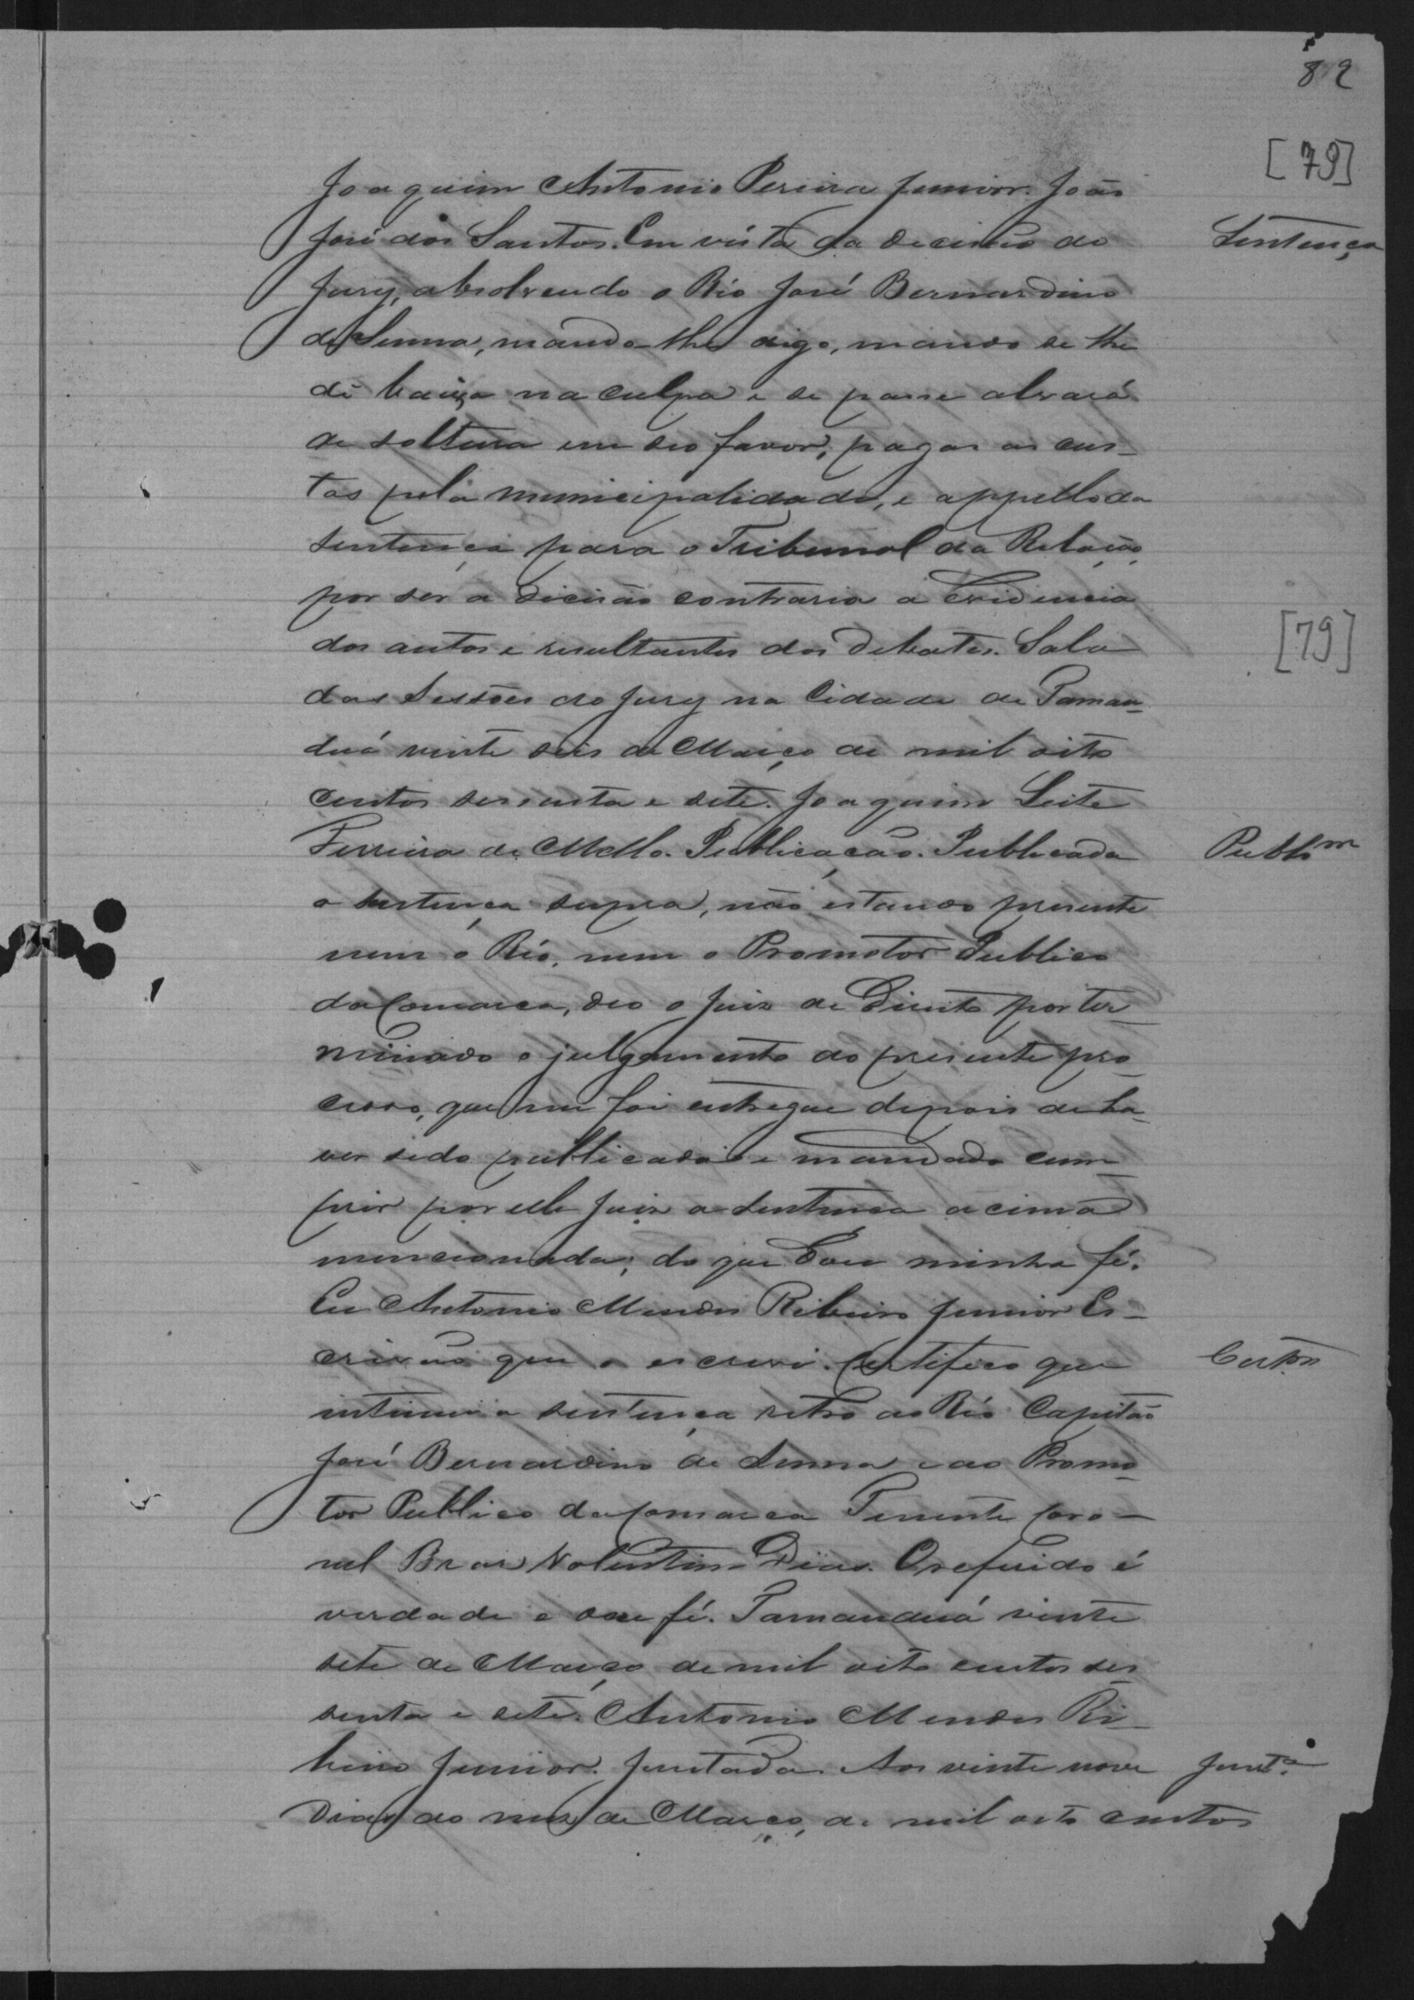 82
[79]
Joaquim Antonio Pereira Junior. João
José dos Santos. Em vista da decisão do
Sentença
Jury, absolvendo o Réo José Bernardino
de Senna, mando-lhe digo, mando se lhe
dê baixa na culpa e se passe alvará
de soltura em seo favor, pagas as cus-
tas pela municipalidade, e appello da
sentença para o Tribunal da Relação,
por ser a decisão contraria a Evidencia
dos autos e resultantes dos debates. Sala
[79]
das Sessões do Jury na Cidade de Taman-
duá vinte seis de Março de mil oito
centos sessenta e sete. Joaquim Leite
Ferreira de Mello. Publicação. Publicada
Publ.m
a sentença supra, não estando presente
nem o Réo, nem o Promotor Publico
da Comarca, deo o Juiz de Direito por ter-
minado o julgamento do presente pro-
cesso, que me foi entregue depois de ha-
ver sido publicada e mandado cum-
prir por elle Juiz a sentença acima
mencionada; do que dou minha fé.
Eu Antonio Mendes Ribeiro Junior Es-
crivão que o escrevi. Certifico que
Certam
intimei a sentença retro ao Réo Capitão
José Bernardino de Senna e ao Promo-
tor Publico da Comarca Tenente Coro-
nel Braz Valentim Dias. O referido é
verdade e dou fé. Tamanduá vinte
sete de Março de mil oito centos ses
senta e sete. Antonio Mendes Ri-
beiro Junior. Juntada. Aos vinte nove
Junt.a
Dias do mez de Março, de mil oito centos